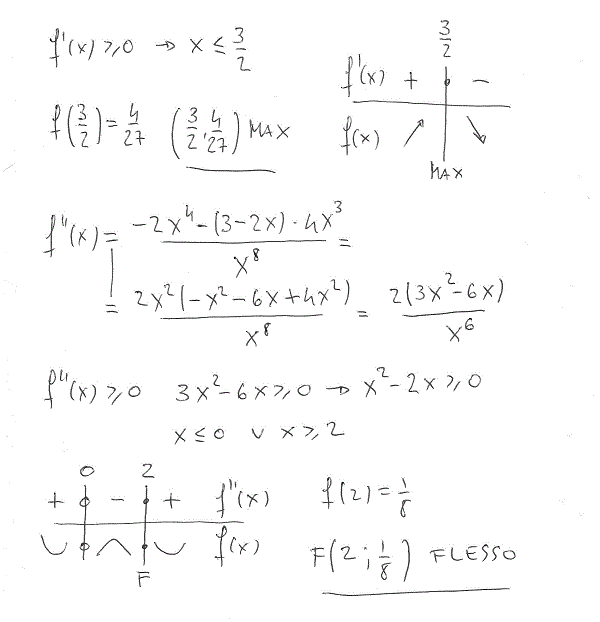 f'(x) ≥ 0 → x ≤ 3/2
3/2
f'(x) + −
f(x) ↗ ↘
MAX
f(3/2) = 4/27 (3/2; 4/27) MAX
f''(x) = (−2x⁴ − (3−2x)·4x³)/x⁸ =
= 2x²(−x² − 6x + 4x²)/x⁸ = 2(3x² − 6x)/x⁶
f''(x) ≥ 0 3x² − 6x ≥ 0 → x² − 2x ≥ 0
x ≤ 0 ∨ x ≥ 2
0 2
+ − + f''(x)
f(x)
F
f(2) = 1/8
F(2; 1/8) FLESSO